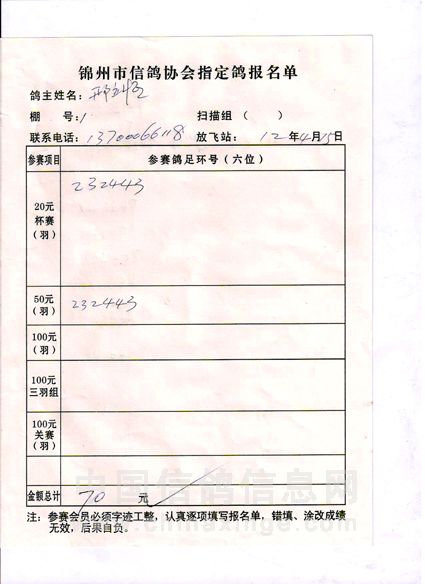 锦州市信鸽协会指定鸽报名单
鸽主姓名：
棚　号：1　扫描组（　　）
联系电话：13700066118　放飞站：12年4月15日
参赛项目　参赛鸽足环号（六位）
20元　232443
杯赛
（羽）
50元　232443
（羽）
100元
（羽）
100元
三羽组
100元
关赛
（羽）
金额总计　70　元
注：参赛会员必须字迹工整，认真逐项填写报名单，错填、涂改成绩
无效，后果自负。
中国信鸽信息网
www.chinaxinge.com